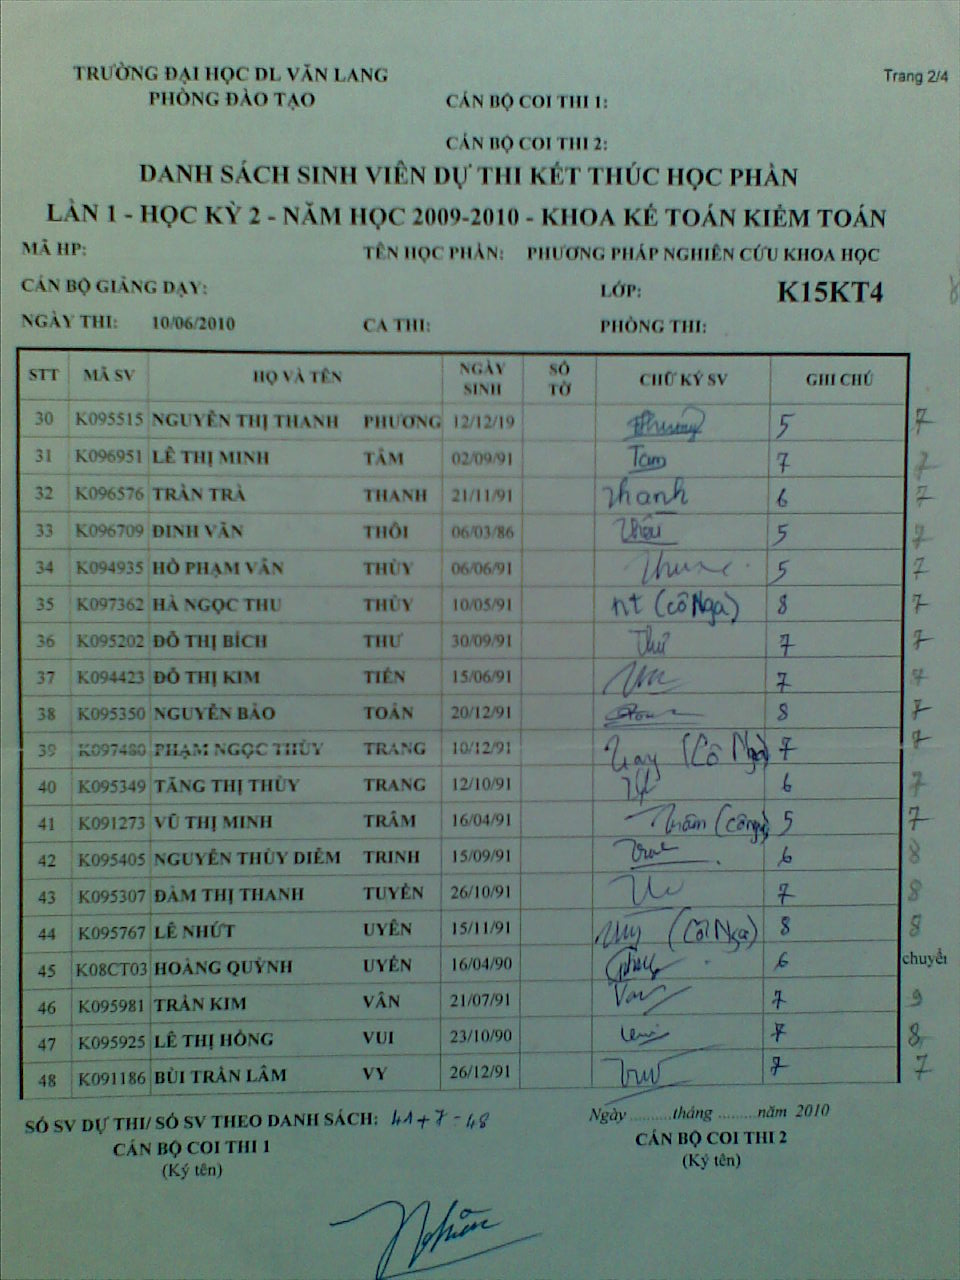 TRƯỜNG ĐẠI HỌC DL VĂN LANG
Trang 2/4
PHÒNG ĐÀO TẠO
CÁN BỘ COI THI 1:
CÁN BỘ COI THI 2:
DANH SÁCH SINH VIÊN DỰ THI KẾT THÚC HỌC PHẦN
LẦN 1 - HỌC KỲ 2 - NĂM HỌC 2009-2010 - KHOA KẾ TOÁN KIỂM TOÁN
MÃ HP: TÊN HỌC PHẦN: PHƯƠNG PHÁP NGHIÊN CỨU KHOA HỌC
CÁN BỘ GIẢNG DẠY: LỚP: K15KT4
NGÀY THI: 10/06/2010 CA THI: PHÒNG THI:
STT MÃ SV HỌ VÀ TÊN NGÀY SINH SỐ TỜ CHỮ KÝ SV GHI CHÚ
30 K095515 NGUYỄN THỊ THANH PHƯƠNG 12/12/19 Phương 5 7
31 K096951 LÊ THỊ MINH TÂM 02/09/91 Tam 7 7
32 K096576 TRẦN TRÀ THANH 21/11/91 Thanh 6 7
33 K096709 ĐINH VĂN THÔI 06/03/86 5 7
34 K094935 HỒ PHẠM VÂN THÙY 06/06/91 5 7
35 K097362 HÀ NGỌC THU THỦY 10/05/91 nt (cô Nga) 8 7
36 K095202 ĐỖ THỊ BÍCH THƯ 30/09/91 Thư 7 7
37 K094423 ĐỖ THỊ KIM TIẾN 15/06/91 7 7
38 K095350 NGUYỄN BẢO TOÀN 20/12/91 8 7
39 K097480 PHẠM NGỌC THÙY TRANG 10/12/91 (Cô Nga) 7 7
40 K095349 TĂNG THỊ THÙY TRANG 12/10/91 6 7
41 K091273 VŨ THỊ MINH TRÂM 16/04/91 Trâm (cô Nga) 5 7
42 K095405 NGUYỄN THÙY DIỄM TRINH 15/09/91 6 8
43 K095307 ĐÀM THỊ THANH TUYỀN 26/10/91 7 8
44 K095767 LÊ NHỨT UYÊN 15/11/91 (Cô Nga) 8 8
45 K08CT03 HOÀNG QUỲNH UYÊN 16/04/90 6 chuyển
46 K095981 TRẦN KIM VÂN 21/07/91 Van 7 9
47 K095925 LÊ THỊ HỒNG VUI 23/10/90 7 8
48 K091186 BÙI TRẦN LÂM VY 26/12/91 7 7
SỐ SV DỰ THI/ SỐ SV THEO DANH SÁCH: 41+7=48
Ngày ..........tháng .........năm 2010
CÁN BỘ COI THI 1 CÁN BỘ COI THI 2
(Ký tên) (Ký tên)